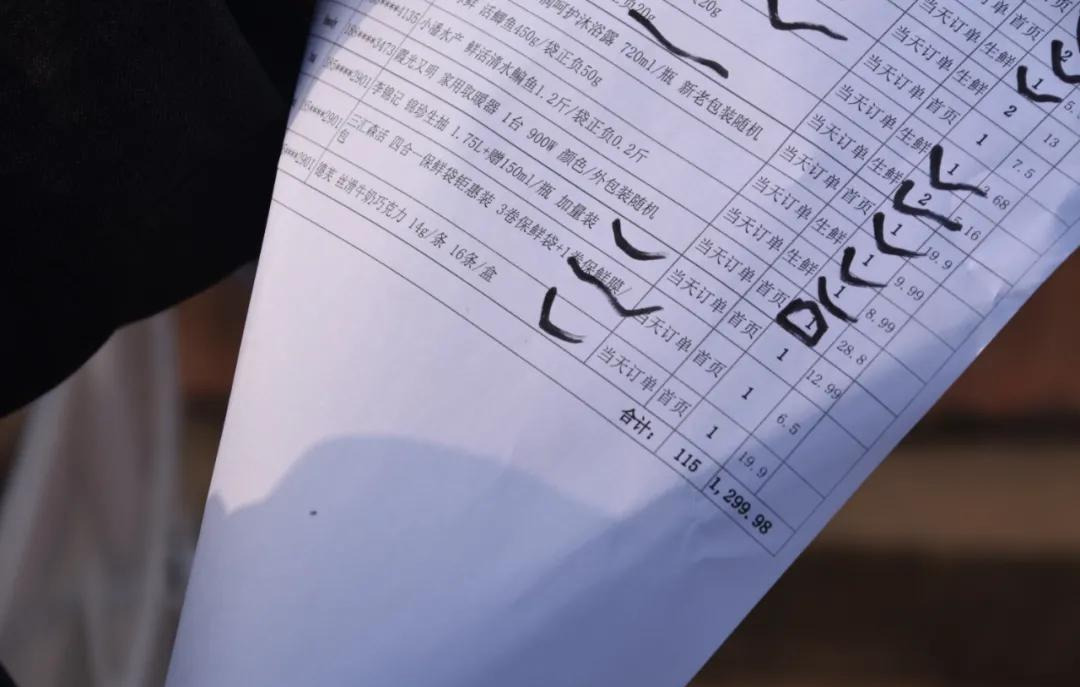 首页 2
当天订单 生鲜 1 5.
当天订单 生鲜 2 13
当天订单 首页 1 7.5
20g 当天订单 生鲜 1 68
负20g 当天订单 生鲜 2 16
呵护沐浴露 720ml/瓶 新老包装随机 当天订单 首页 1 19.9
活鲫鱼450g/袋正负50g 当天订单 生鲜 1 9.99
****4135 小潘水产 鲜活清水鳊鱼1.2斤/袋正负0.2斤 当天订单 生鲜 1 8.99
****3473 霞光又明 家用取暖器 1台 900W 颜色/外包装随机 当天订单 首页 1 28.8
****2901 李锦记 锦珍生抽 1.75L+赠150ml/瓶 加量装 当天订单 首页 1 12.99
****2901 三汇森活 四合一保鲜袋钜惠装 3卷保鲜袋+1卷保鲜膜/包 当天订单 首页 1 6.5
****2901 德芙 丝滑牛奶巧克力 14g/条 16条/盒 当天订单 首页 1 19.9
合计: 115 1,299.98